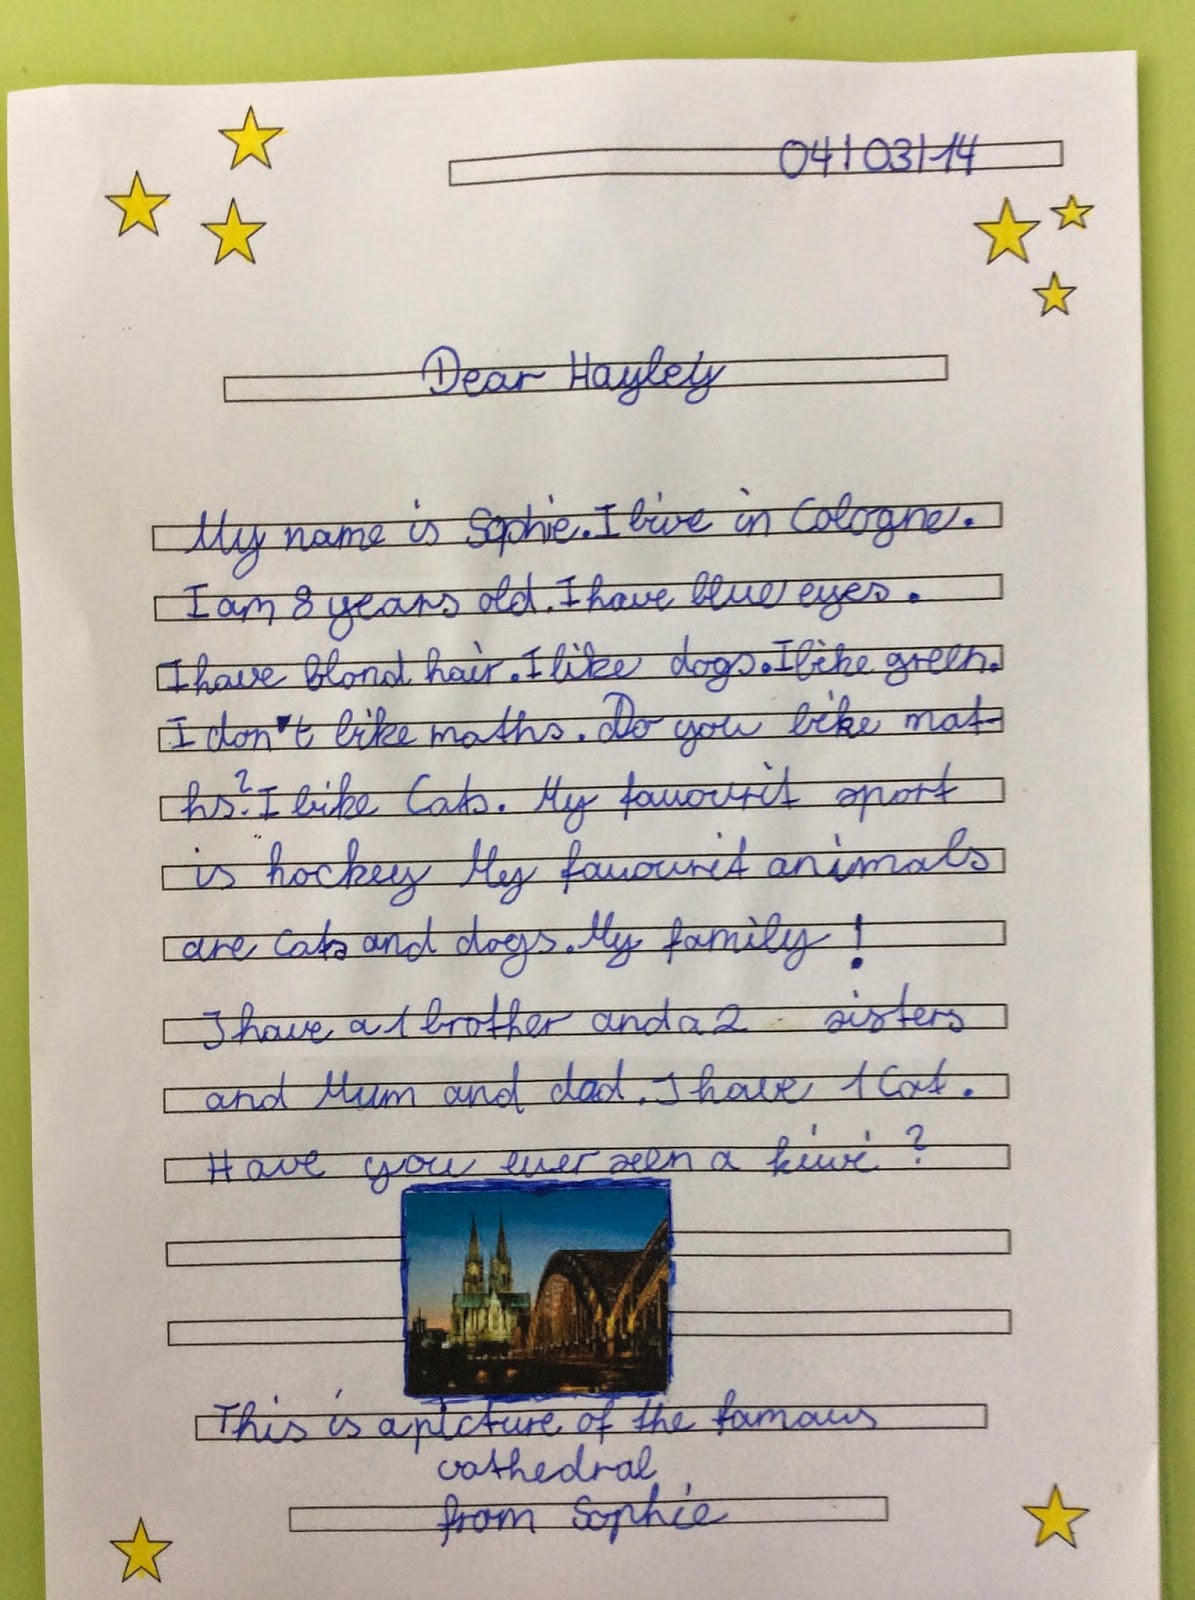 04/03/14
Dear Hayley
My name is Sophie. I live in Cologne.
I am 8 years old. I have blue eyes.
I have blond hair. I like dogs. I like green.
I don't like maths. Do you like mat-
hs? I like Cats. My favourit sport
is hockey My favourit animals
are Cats and dogs. My family !
I have a 1 brother and a 2 sisters
and Mum and dad. I have 1 Cat.
Have you ever seen a kiwi ?
This is a picture of the famous
cathedral
from Sophie